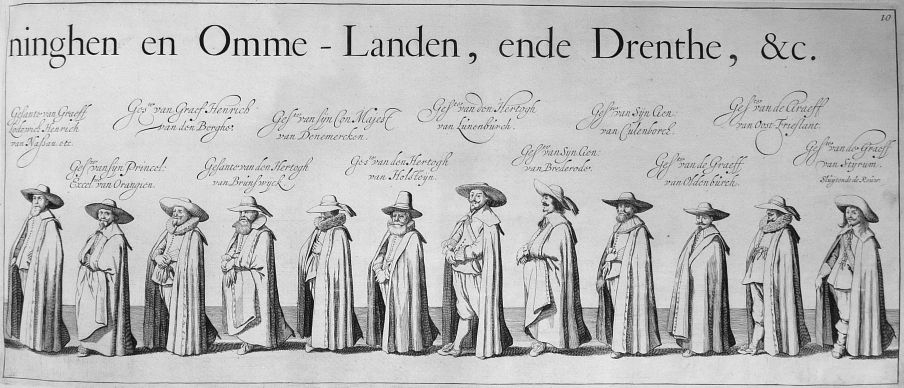 10
ninghen en Omme - Landen, ende Drenthe, &c.
Gesante van Graeff
Lodewijc Henrich
van Nassau. etc.
Gestn van syn Princel:
Excel. van Orangien.
Gestn van Graef Henrich
van den Berghe.
Gesante van den Hertogh
van Brunswyck
Gestn van syn Con. Majest
van Denemercken.
Gestn van den Hertogh
van Holsteyn.
Gestn van den Hertogh
van Lunenburch.
Gestn van Syn Gen:
van Brederode.
Gestn van Syn Gen:
van Culenborch.
Gestn van de Graeff
van Oldenburch.
Gestn van de Graeff
van Oost-Frieslant.
Gestn van de Graeff
van Styrum.
Sluytende de Rouw.